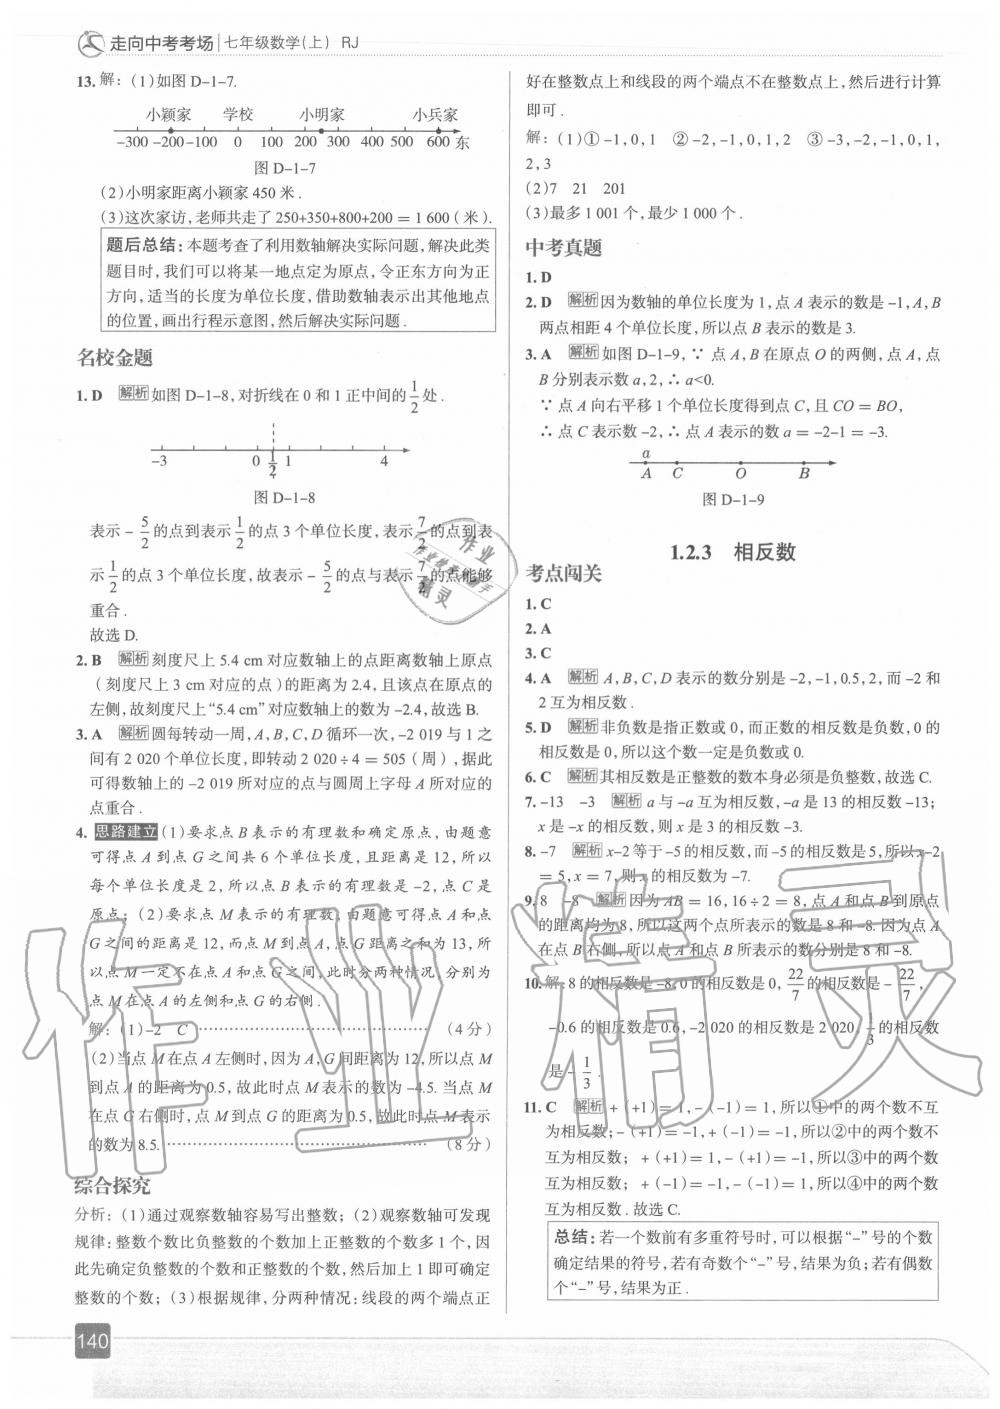 走向中考考场 七年级数学(上) RJ
13. 解：(1)如图 D-1-7.
小颖家 学校 小明家 小兵家
-300 -200 -100 0 100 200 300 400 500 600 东
图 D-1-7
(2)小明家距离小颖家 450 米.
(3)这次家访,老师共走了 250+350+800+200 = 1 600(米).
题后总结:本题考查了利用数轴解决实际问题,解决此类
题目时,我们可以将某一地点定为原点,令正东方向为正
方向,适当的长度为单位长度,借助数轴表示出其他地点
的位置,画出行程示意图,然后解决实际问题.
名校金题
1. D 解析 如图 D-1-8,对折线在 0 和 1 正中间的 1/2 处.
-3 0 1/2 1 4
图 D-1-8
表示 -5/2 的点到表示 1/2 的点 3 个单位长度,表示 7/2 的点到表
示 1/2 的点 3 个单位长度,故表示 -5/2 的点与表示 7/2 的点能够
重合.
故选 D.
2. B 解析 刻度尺上 5.4 cm 对应数轴上的点距离数轴上原点
(刻度尺上 3 cm 对应的点)的距离为 2.4,且该点在原点的
左侧,故刻度尺上“5.4 cm”对应数轴上的数为 -2.4,故选 B.
3. A 解析 圆每转动一周,A,B,C,D 循环一次,-2 019 与 1 之
间有 2 020 个单位长度,即转动 2 020÷4 = 505(周),据此
可得数轴上的 -2 019 所对应的点与圆周上字母 A 所对应的
点重合.
4. 思路建立 (1)要求点 B 表示的有理数和确定原点,由题意
可得点 A 到点 G 之间共 6 个单位长度,且距离是 12,所以
每个单位长度是 2,所以点 B 表示的有理数是 -2,点 C 是
原点;(2)要求点 M 表示的有理数,由题意可得点 A 和点
G 之间的距离是 12,而点 M 到点 A,点 G 距离之和为 13,所
以点 M 一定不在点 A 和点 G 之间,此时分两种情况,分别为
点 M 在点 A 的左侧和点 G 的右侧.
解:(1)-2 C …… (4 分)
(2)当点 M 在点 A 左侧时,因为 A,G 间距离为 12,所以点 M
到点 A 的距离为 0.5,故此时点 M 表示的数为 -4.5. 当点 M
在点 G 右侧时,点 M 到点 G 的距离为 0.5,故此时点 M 表示
的数为 8.5. …… (8 分)
综合探究
分析:(1)通过观察数轴容易写出整数;(2)观察数轴可发现
规律:整数个数比负整数的个数加上正整数的个数多 1 个,因
此先确定负整数的个数和正整数的个数,然后加上 1 即可确定
整数的个数;(3)根据规律,分两种情况:线段的两个端点正
140
好在整数点上和线段的两个端点不在整数点上,然后进行计算
即可.
解:(1)① -1,0,1 ② -2,-1,0,1,2 ③ -3,-2,-1,0,1,
2,3
(2)7 21 201
(3)最多 1 001 个,最少 1 000 个.
中考真题
1. D
2. D 解析 因为数轴的单位长度为 1,点 A 表示的数是 -1,A,B
两点相距 4 个单位长度,所以点 B 表示的数是 3.
3. A 解析 如图 D-1-9,∵ 点 A,B 在原点 O 的两侧,点 A,点
B 分别表示数 a,2,∴ a<0.
∵ 点 A 向右平移 1 个单位长度得到点 C,且 CO = BO,
∴ 点 C 表示数 -2,∴ 点 A 表示的数 a = -2-1 = -3.
a
A C O B
图 D-1-9
1.2.3 相反数
考点闯关
1. C
2. A
3. C
4. A 解析 A,B,C,D 表示的数分别是 -2,-1,0.5,2,而 -2 和
2 互为相反数.
5. D 解析 非负数是指正数或 0,而正数的相反数是负数,0 的
相反数是 0,所以这个数一定是负数或 0.
6. C 解析 其相反数是正整数的数本身必须是负整数,故选 C.
7. -13 -3 解析 a 与 -a 互为相反数,-a 是 13 的相反数 -13;
x 是 -x 的相反数,则 x 是 3 的相反数 -3.
8. -7 解析 x-2 等于 -5 的相反数,而 -5 的相反数是 5,所以 x-2
= 5,x = 7,则 x 的相反数为 -7.
9. 8 -8 解析 因为 AB = 16,16÷2 = 8,点 A 和点 B 到原点
的距离均为 8,所以这两个点所表示的数是 8 和 -8. 因为点 A
在点 B 右侧,所以点 A 和点 B 所表示的数分别是 8 和 -8.
10. 解:8 的相反数是 -8,0 的相反数是 0,22/7 的相反数是 -22/7,
-0.6 的相反数是 0.6,-2 020 的相反数是 2 020,1/3 的相反数
是 -1/3.
11. C 解析 +(+1) = 1,-(-1) = 1,所以①中的两个数不互
为相反数;-(+1) = -1,+(-1) = -1,所以②中的两个数不
互为相反数; +(+1) = 1,-(+1) = -1,所以③中的两个数
互为相反数; +(-1) = -1,-(-1) = 1,所以④中的两个数
互为相反数.故选 C.
总结:若一个数前有多重符号时,可以根据“-”号的个数
确定结果的符号,若有奇数个“-”号,结果为负;若有偶数
个“-”号,结果为正.
作业精灵